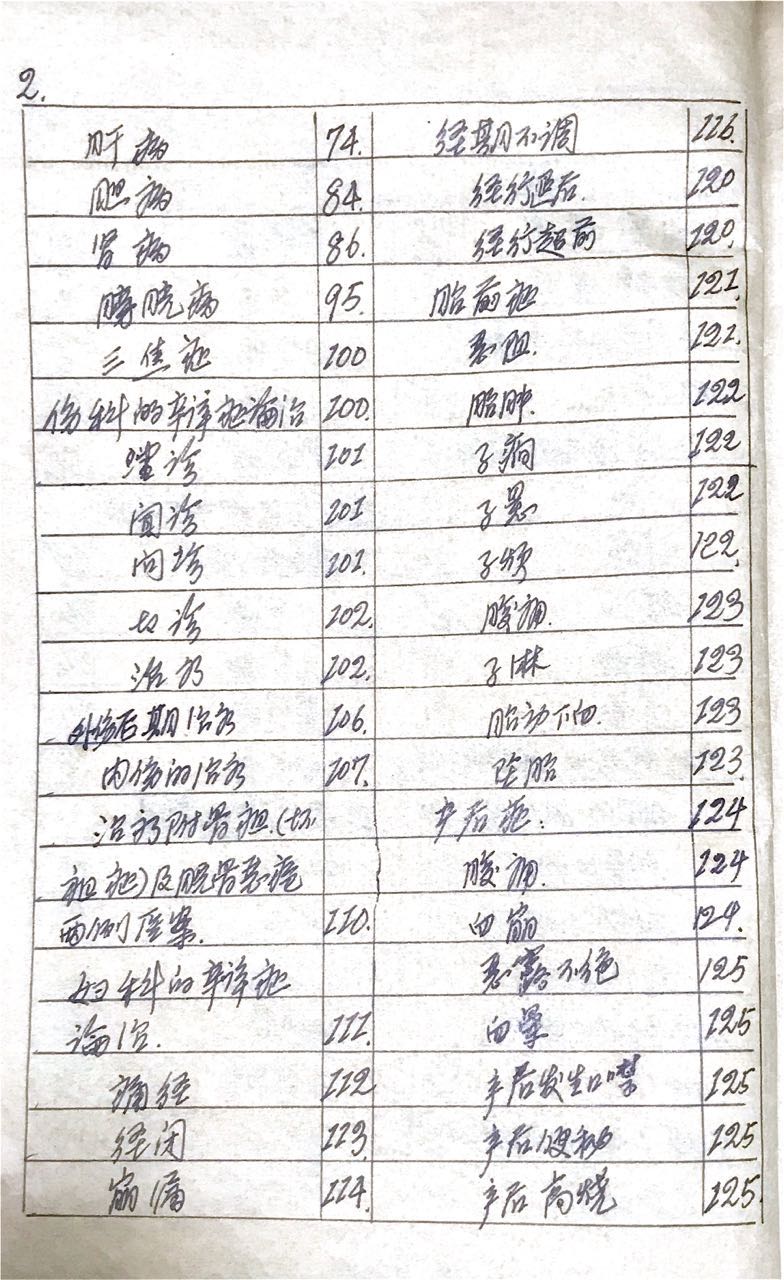 2.
肝病 74.
胆病 84.
肾病 86.
膀胱病 95.
三焦症 100
伤科的辛译症论治 100.
望诊 101
闻诊 101
问诊 101.
切诊 102.
治疗 102.
外伤后期治疗 106.
内伤的治疗 107.
治疗附骨疽.(坏
疽症)及脱骨恶疮
两例医案. 110.
妇科的辛译症
论治. 111.
痛经 112
经闭 113.
崩漏 114.
经期不调 116.
经行延后. 120
经行超前 120.
胎前症 121.
恶阻. 121.
胎肿. 122
子痫 122
子晕 122
子烦 122.
腹痛. 123
子淋 123
胎动下血. 123
坠胎 123.
产后症: 124
腹痛. 124
血崩 124.
恶露不绝 125
血晕 125
产后发生口噤 125
产后便秘 125
产后高烧 125.